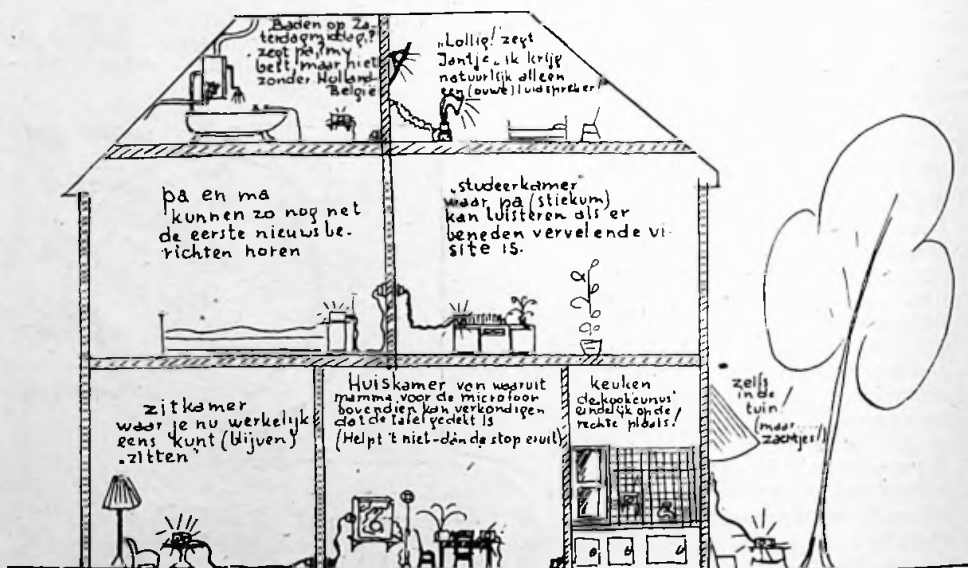 „Baden op Za-
terdagmiddag?
zegt pa, „mij
best, maar niet
zonder Holland-
België
„Lollig!” zegt
Jantje „ik krijg
natuurlijk alleen
een (ouwe) luidspreker!
pa en ma
kunnen zo nog net
de eerste nieuwsbe-
richten horen
„studeerkamer”
waar pa (stiekum)
kan luisteren als er
beneden vervelende vi-
site is.
zitkamer
waar je nu werkelijk
eens kunt (blijven)
„zitten”
Huiskamer van waaruit
mamma voor de microfoon
bovendien kan verkondigen
dat de tafel gedekt is
(Helpt 't niet-dan de stop eruit)
keuken
de kookcursus
eindelijk op de
rechte plaats!
zelfs
in de
tuin!
(maar....
zachtjes!)